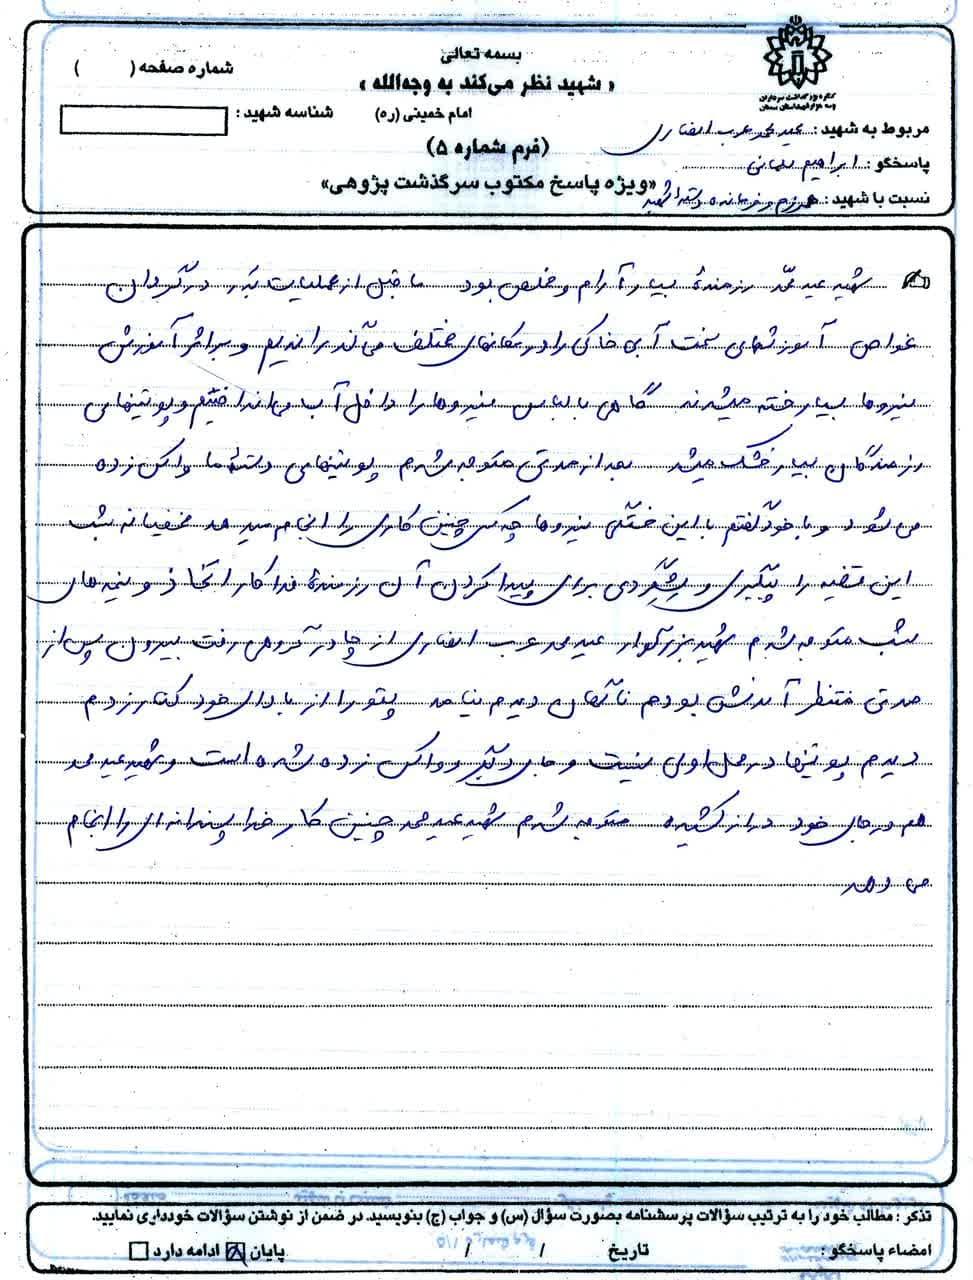 بسمه تعالی
« شهید نظر می‌کند به وجه‌الله »
امام خمینی (ره)
(فرم شماره ۵)
«ویژه پاسخ مکتوب سرگذشت پژوهی»
شماره صفحه ( )
شناسه شهید :
کنگره بزرگداشت سرداران
وسه هزار شهید استان سمنان
مربوط به شهید : عید محمد عرب انصاری
پاسخگو : ابراهیم سلمانی
نسبت با شهید : همرزم و فرمانده دسته شهید
شهید عید محمد رزمندهٔ بسیار آرام و مخلص بود ما قبل از عملیات بدر در گردان
غواص آموزشهای سخت آبی خاکی را در مکانهای مختلف می‌گذراندیم و بر اثر آموزش
نیروها بسیار خسته میشدند گاهی با لباس نیروها را داخل آب می‌انداختیم و پوتینهای
رزمندگان بسیار خشک میشد بعد از مدتی متوجه شدم پوتینهای دستهٔ ما واکس زده
می شود و با خود گفتم با این خستگی نیروها چه کسی چنین کاری را انجام میدهد مخفیانه شب
این قضیه را پیگیری و برای پیدا کردن آن رزمندهٔ فداکار اتخاذ و نیمه های
شب متوجه شدم شهید بزرگوار عید محمد عرب انصاری از چادر گروهی رفت بیرون پس از
مدتی منتظر آمدنش بودم ناگهان دیدم نیامد پتو را از بالای خود کنار زدم
دیدم پوتینها در محل اولی نیست و جای دیگر و واکس زده شده است و شهید عید محمد
هم در جای خود دراز کشیده متوجه شدم شهید عید محمد چنین کار خدا پسندانه ای را انجام
می دهد
تذکر : مطالب خود را به ترتیب سؤالات پرسشنامه بصورت سؤال (س) و جواب (ج) بنویسید. در ضمن از نوشتن سؤالات خودداری نمایید.
امضاء پاسخگو : تاریخ / / پایان ادامه دارد